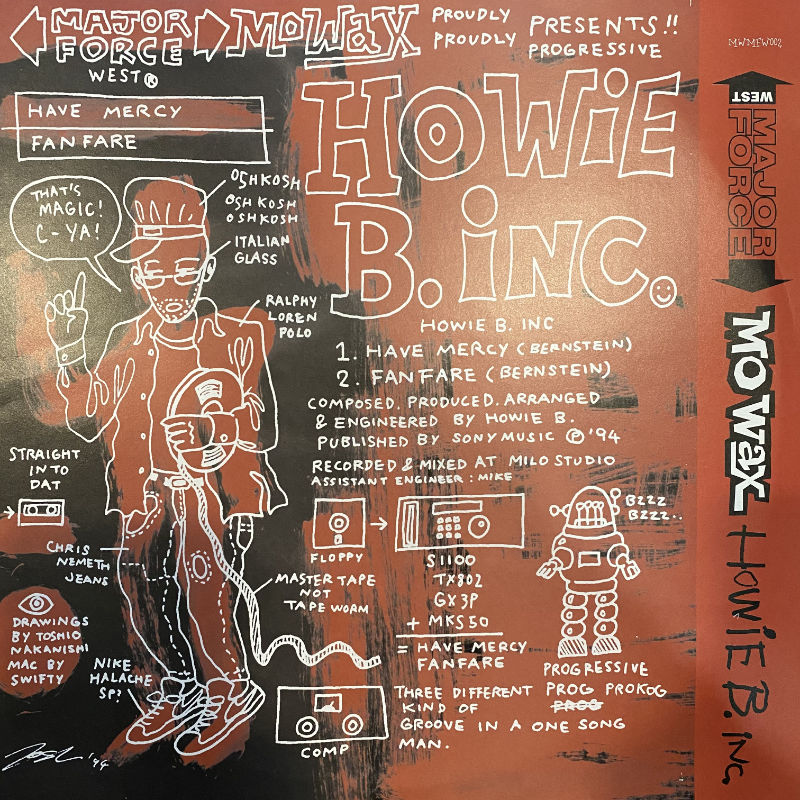 MAJOR FORCE WEST®
MO WAX
PROUDLY PRESENTS!!
PROUDLY PROGRESSIVE
HAVE MERCY
FANFARE
HOWIE
B. INC.
THAT'S
MAGIC!
C-YA!
OSHKOSH
OSH KOSH
OSHKOSH
ITALIAN
GLASS
RALPHY
LOREN
POLO
HOWIE B. INC
1. HAVE MERCY (BERNSTEIN)
2. FANFARE (BERNSTEIN)
COMPOSED, PRODUCED, ARRANGED
& ENGINEERED BY HOWIE B.
PUBLISHED BY SONY MUSIC ℗ '94
RECORDED & MIXED AT MILO STUDIO
ASSISTANT ENGINEER : MIKE
STRAIGHT
INTO
DAT
CHRIS
NEMETH
JEANS
DRAWINGS
BY TOSHIO
NAKANISHI
MAC BY
SWIFTY
NIKE
HALACHE
SP?
'94
MASTER TAPE
NOT
TAPE WORM
FLOPPY
S1100
TX802
GX3P
+ MKS50
= HAVE MERCY
FANFARE
BZZZ
BZZZ..
PROGRESSIVE
PROG PROKOG
PROG
COMP
THREE DIFFERENT
KIND OF
GROOVE IN A ONE SONG
MAN.
MWMFW002
WEST
MAJOR
FORCE
MO WAX
HOWIE B. INC.